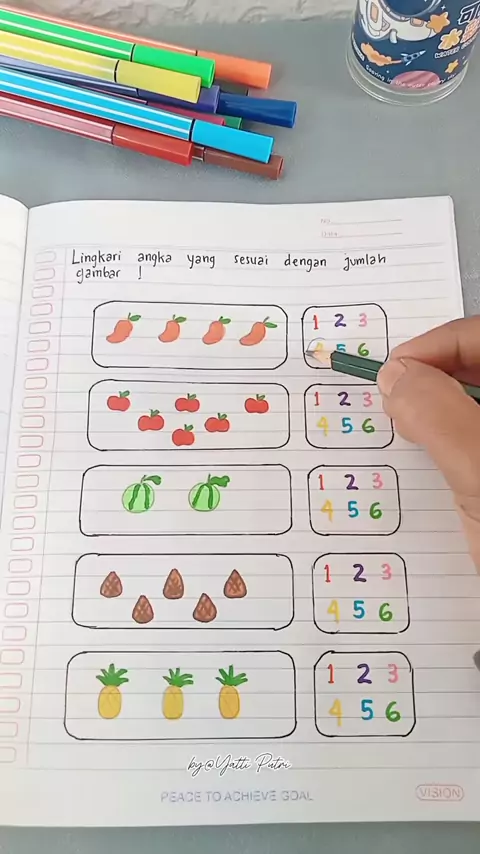 Lingkari angka yang sesuai dengan jumlah
gambar !
1 2 3
4 5 6
1 2 3
4 5 6
1 2 3
4 5 6
1 2 3
4 5 6
1 2 3
4 5 6
by@Yatti Putri
PEACE TO ACHIEVE GOAL
VISION